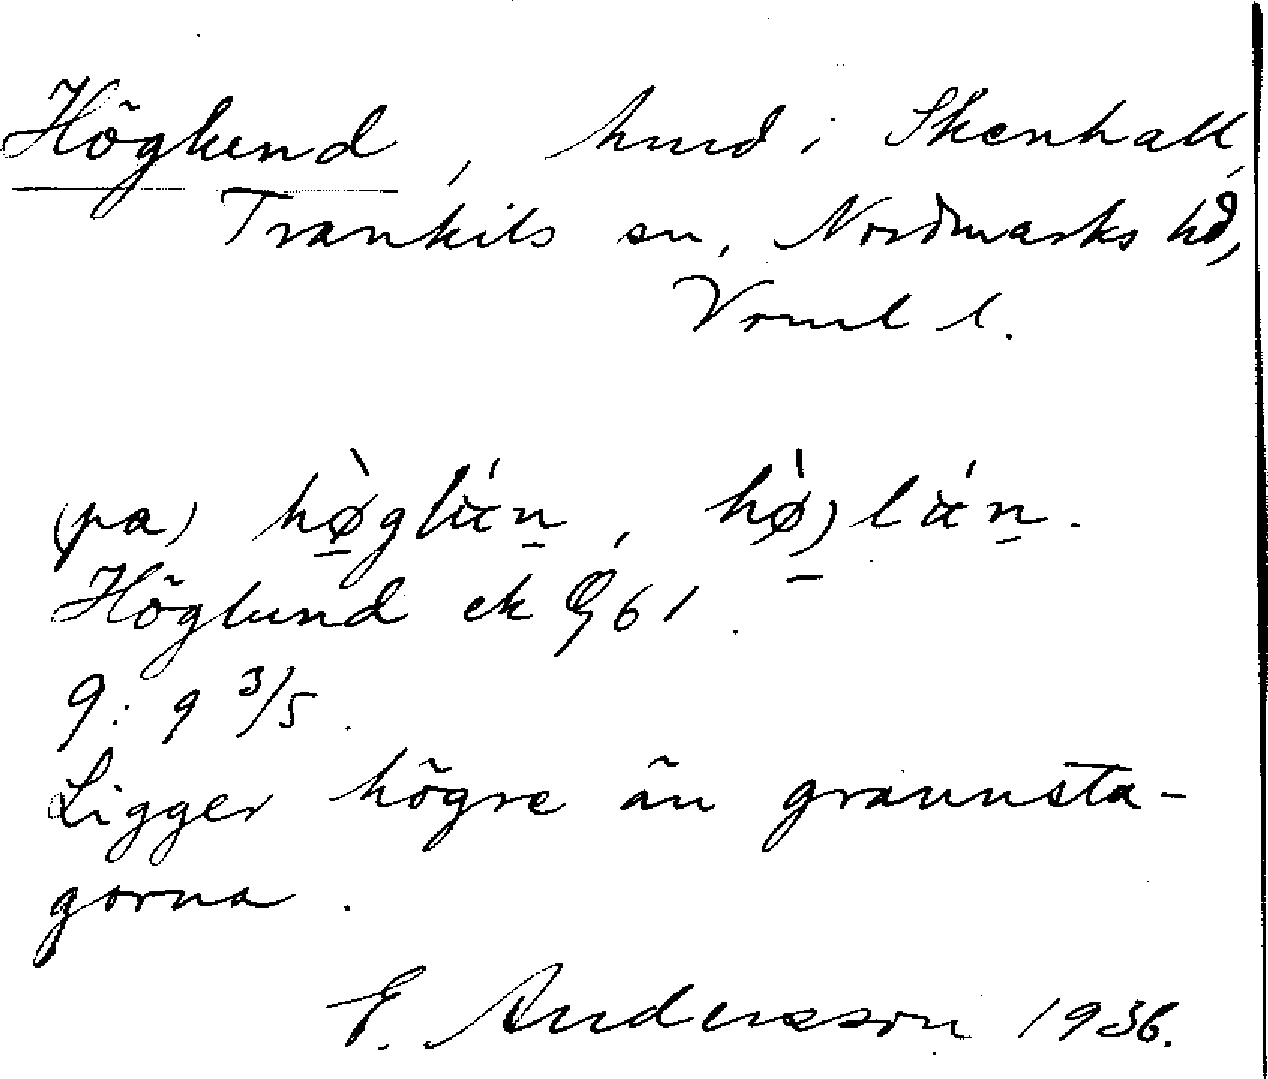 Höglund, hmd i Skenhall,
Trankils sn, Nordmarks hd,
Vrml l.
(pa) hø̀glän, hø̀)län.
Höglund ek 61.
9: 9 3/5.
Ligger högre än grannsta-
gorna.
E. Andersson 1936.